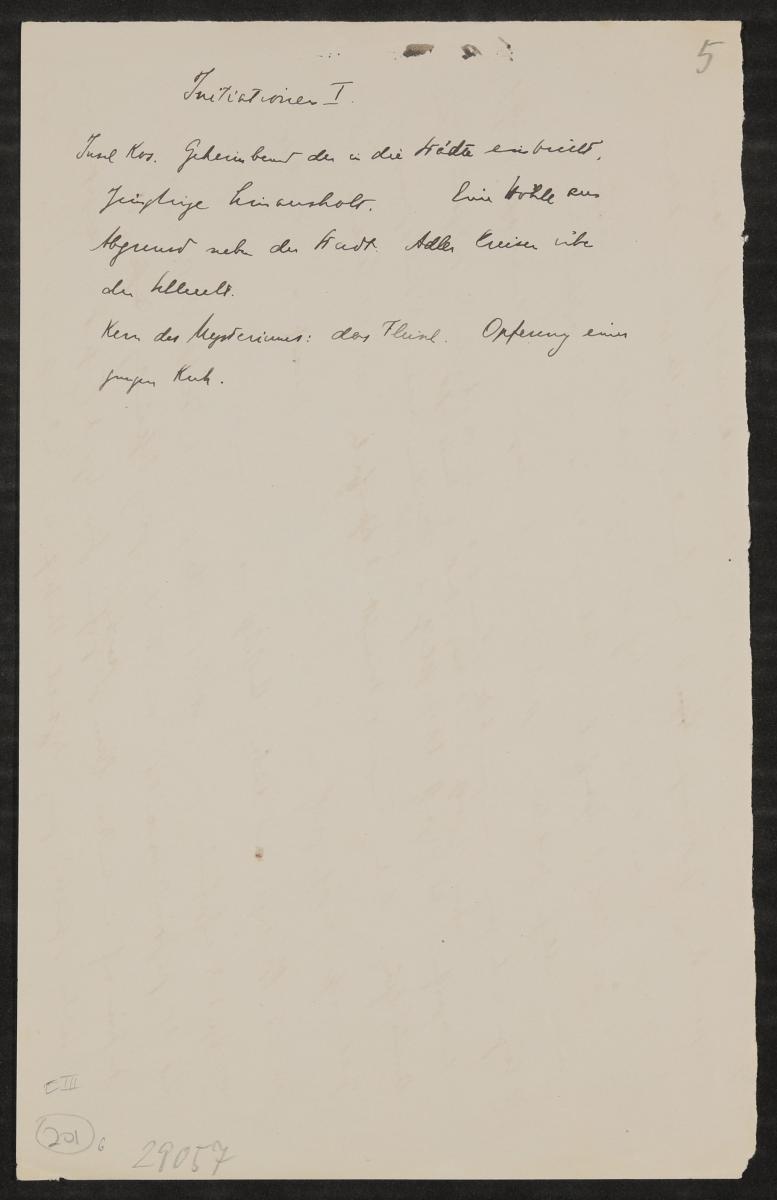 5
Initiationen I.
Insel Kos. Geheimbund der in die Städte einbricht,
Jünglinge hinausholt. Eine Höhle am
Abgrund neben der Stadt. Adler kreisen über
der
Kern des Mysteriums: das Fleisch. Opferung einer
jungen Kuh.
E III
201 6
29057